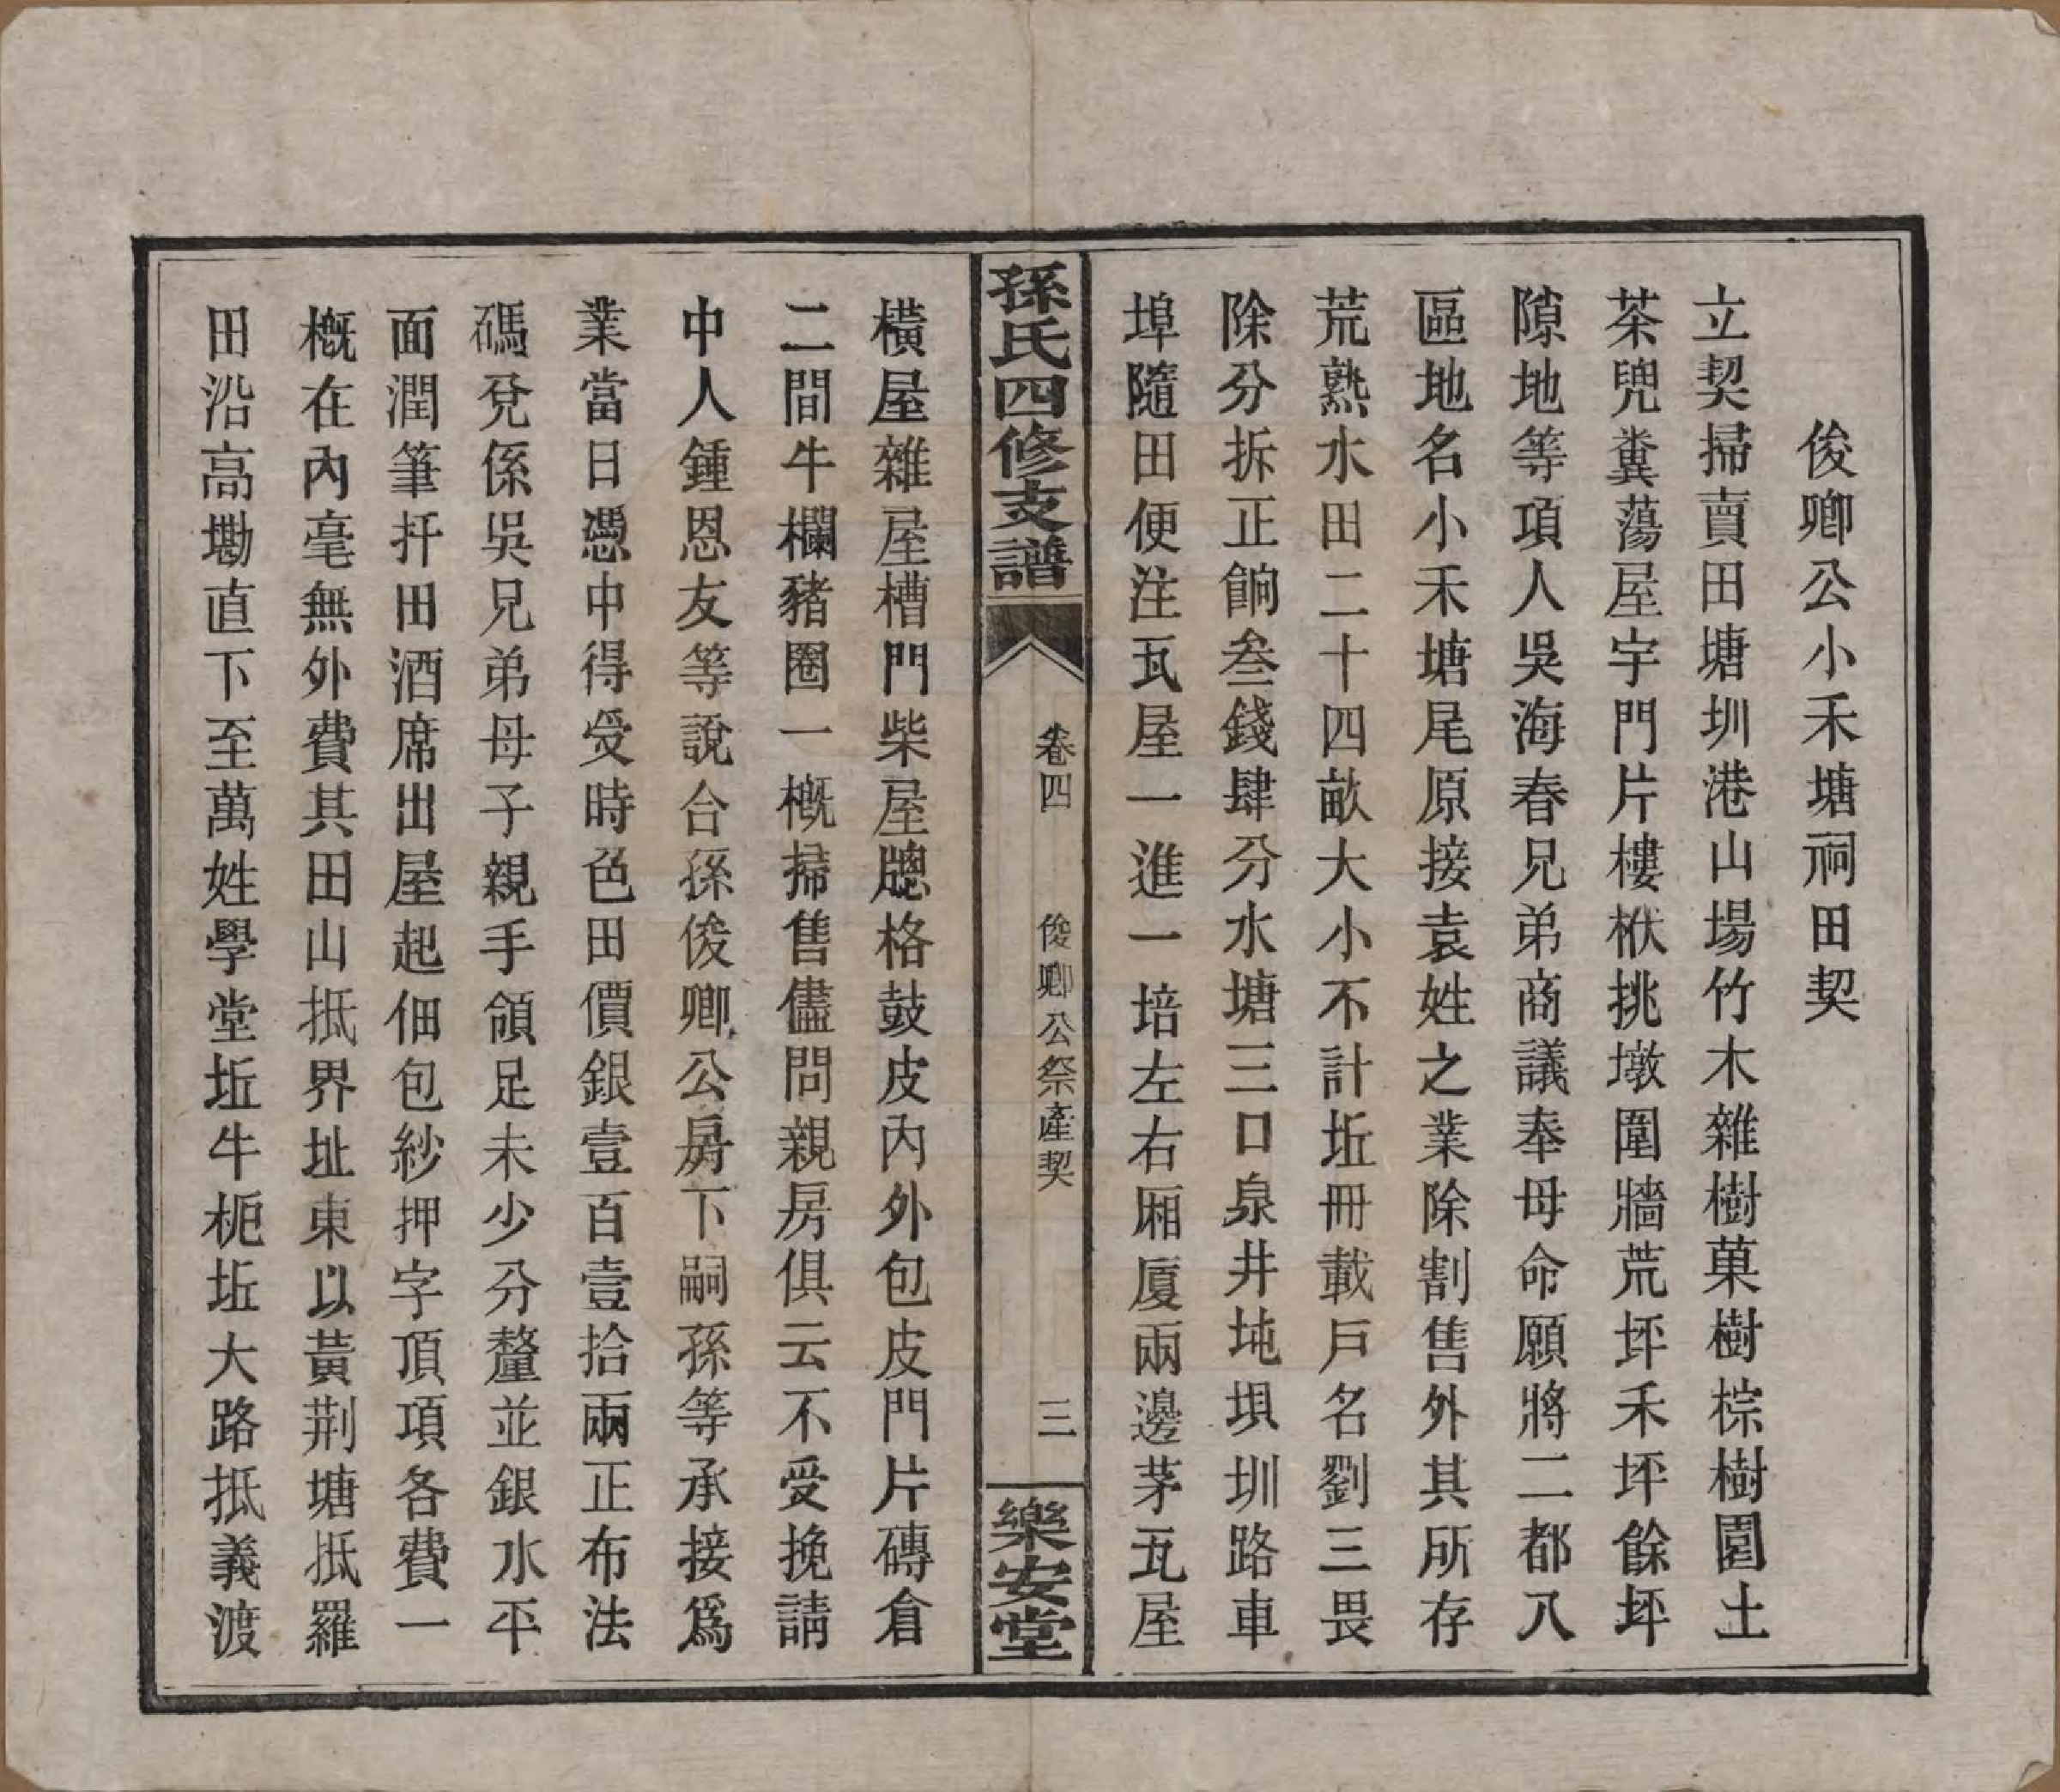 俊卿公小禾塘祠田契
立契掃賣田塘圳港山場竹木雜樹菓樹棕樹園土
茶兜糞蕩屋宇門片樓栿挑墩圍牆荒坪禾坪餘坪
隙地等項人吳海春兄弟商議奉母命願將二都八
區地名小禾塘尾原接袁姓之業除割售外其所存
荒熟水田二十四畝大小不計坵冊載戶名劉三畏
除分拆正餉叄錢肆分水塘三口泉井坉垻圳路車
埠隨田便注瓦屋一進一培左右厢廈兩邊茅瓦屋
孫氏四修支譜
卷四
俊卿公祭產契
三
樂安堂
橫屋雜屋槽門柴屋牕格鼓皮內外包皮門片磚倉
二間牛欄豬圈一概掃售儘問親房俱云不受挽請
中人鍾恩友等說合孫俊卿公房下嗣孫等承接爲
業當日憑中得受時色田價銀壹百壹拾兩正布法
碼兌係吳兄弟母子親手領足未少分釐並銀水平
面潤筆扦田酒席出屋起佃包紗押字頂項各費一
概在內毫無外費其田山抵界址東以黃荆塘抵羅
田沿高墈直下至萬姓學堂坵牛栀坵大路抵義渡